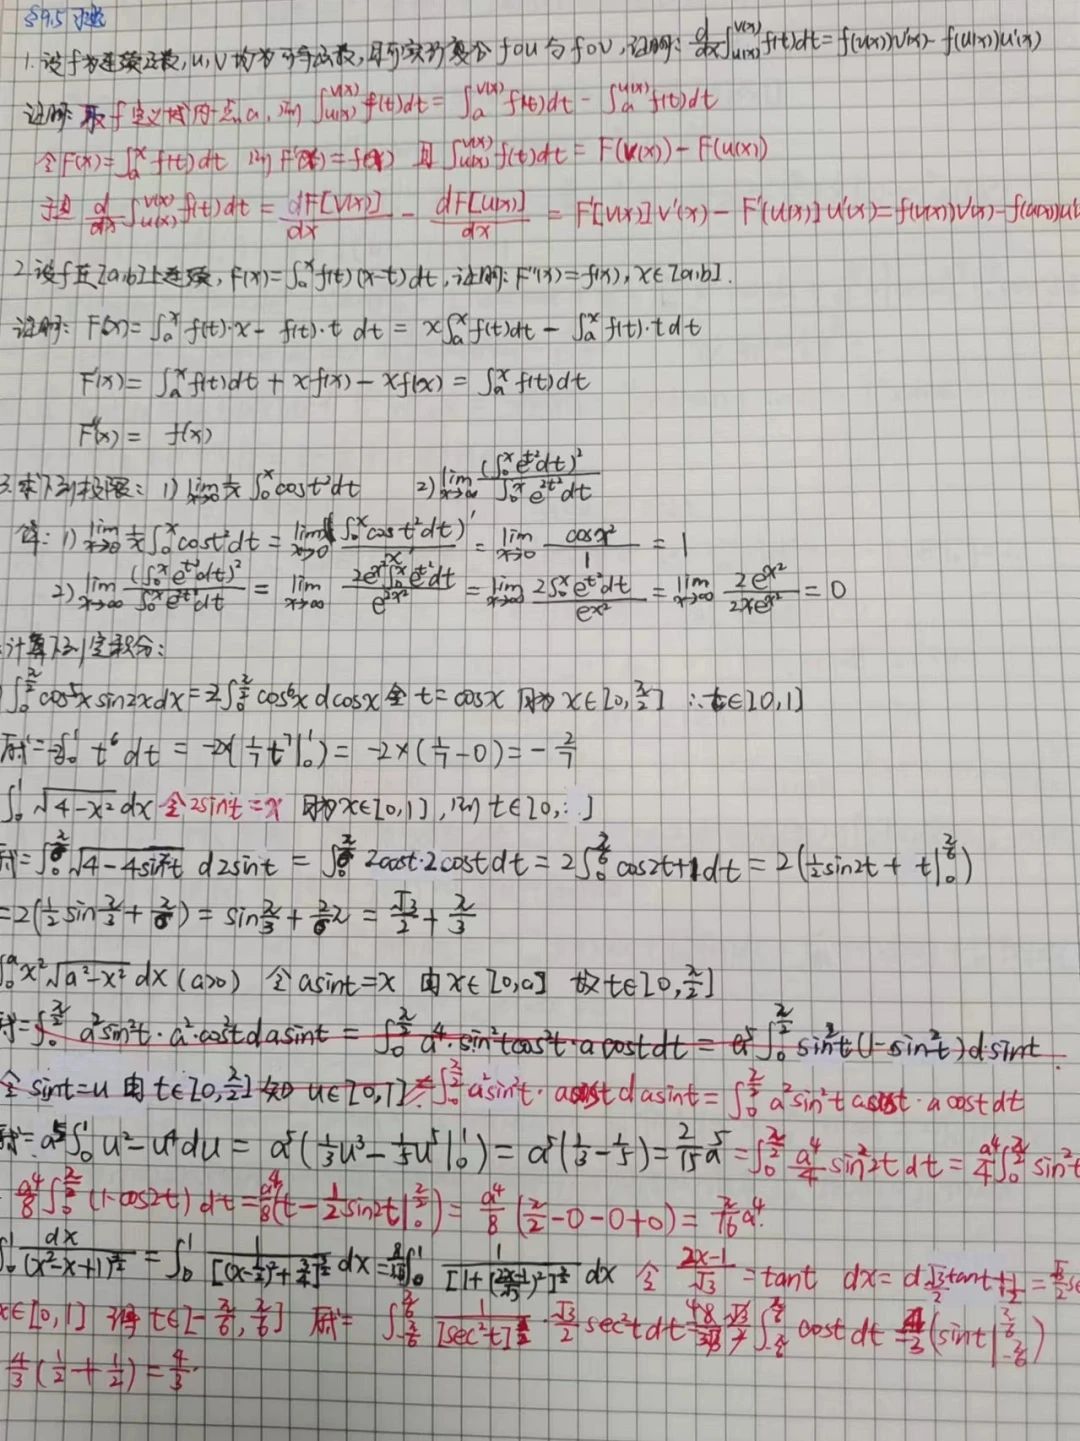 §9.5 习题
1. 设f为连续函数,u,v均为可导函数,且可实行复合 f∘u 与 f∘v,证明: d/dx ∫_{u(x)}^{v(x)} f(t)dt = f(v(x))v'(x) - f(u(x))u'(x)
证明: 取f定义域内一点a, 则 ∫_{u(x)}^{v(x)} f(t)dt = ∫_a^{v(x)} f(t)dt - ∫_a^{u(x)} f(t)dt
令F(x)=∫_a^x f(t)dt 则 F'(x)=f(x) 且 ∫_{u(x)}^{v(x)} f(t)dt = F(v(x)) - F(u(x))
于是 d/dx ∫_{u(x)}^{v(x)} f(t)dt = dF[v(x)]/dx - dF[u(x)]/dx = F'[v(x)]v'(x) - F'(u(x)]u'(x) = f(v(x))v'(x) - f(u(x))u'
2. 设f在[a,b]上连续, F(x)=∫_a^x f(t)(x-t)dt, 证明: F''(x)=f(x), x∈[a,b].
证明: F(x)=∫_a^x f(t)·x - f(t)·t dt = x∫_a^x f(t)dt - ∫_a^x f(t)·t dt
F'(x)= ∫_a^x f(t)dt + xf(x) - xf(x) = ∫_a^x f(t)dt
F''(x) = f(x)
3. 求下列极限: 1) lim_{x→0} 1/x ∫_0^x cost²dt 2) lim_{x→∞} (∫_0^x e^{t²}dt)² / ∫_0^x e^{2t²}dt
解: 1) lim_{x→0} 1/x ∫_0^x cost²dt = lim_{x→0} (∫_0^x cos t²dt)' / x' = lim_{x→0} cosx²/1 = 1
2) lim_{x→∞} (∫_0^x e^{t²}dt)² / ∫_0^x e^{2t²}dt = lim_{x→∞} 2e^{x²}∫_0^x e^{t²}dt / e^{2x²} = lim_{x→∞} 2∫_0^x e^{t²}dt / e^{x²} = lim_{x→∞} 2e^{x²} / 2xe^{x²} = 0
计算下列定积分:
∫_0^{π/2} cos⁵x sin2x dx = 2∫_0^{π/2} cos⁶x dcosx 令 t=cosx 因为 x∈[0,π/2] ∴t∈[0,1]
原式=-2∫_0^1 t⁶dt = -2(1/7 t⁷|_0^1) = -2×(1/7-0) = -2/7
∫_0^1 √(4-x²) dx 令2sint=x 因为x∈[0,1], 则 t∈[0, ]
原式=∫_0^{π/6} √(4-4sin²t) d2sint = ∫_0^{π/6} 2cost·2costdt = 2∫_0^{π/6} cos2t+1dt = 2(1/2 sin2t + t|_0^{π/6})
=2(1/2 sin π/3 + π/6) = sin π/3 + 2/6 π = √3/2 + π/3
∫_0^a x²√(a²-x²) dx (a>0) 令 asint=x 由 x∈[0,a] 故t∈[0,π/2]
原式=∫_0^{π/2} a²sin²t·a²·cos²t dasint = ∫_0^{π/2} a⁴·sin²tcos²t·acostdt = a⁵∫_0^{π/2} sin²t(1-sin²t)dsint
令 sint=u 由 t∈[0,π/2] 知 u∈[0,1] =∫_0^{π/2} a²sin²t·acost dasint = ∫_0^{π/2} a²sin²t acost·acostdt
原式=a⁵∫_0^1 u²-u⁴du = a⁵(1/3 u³ - 1/5 u⁵|_0^1) = a⁵(1/3-1/5) = 2/15 a⁵ =∫_0^{π/2} a⁴/4 sin²2t dt = a⁴/4 ∫_0^{π/2} sin²t
a⁴/8 ∫_0^{π/2} (1-cos2t)dt = a⁴/8(t-1/2 sin2t|_0^{π/2}) = a⁴/8 (π/2-0-0+0) = π/16 a⁴.
∫_0^1 dx/(x²-x+1)^{3/2} = ∫_0^1 1/[(x-1/2)²+3/4]^{3/2} dx = ∫_0^1 1/[1+(2x-1/√3)²]^{3/2} dx 令 2x-1/√3 = tant dx = d √3/2 tant+1/2 = √3/2 se
x∈[0,1] 得 t∈[-π/6,π/6] 原式= ∫_{-π/6}^{π/6} 1/[sec²t]^{3/2} · √3/2 sec²tdt = ∫_{-π/6}^{π/6} costdt = 4/3 (sint|_{-π/6}^{π/6})
4/3 (1/2+1/2) = 4/3.